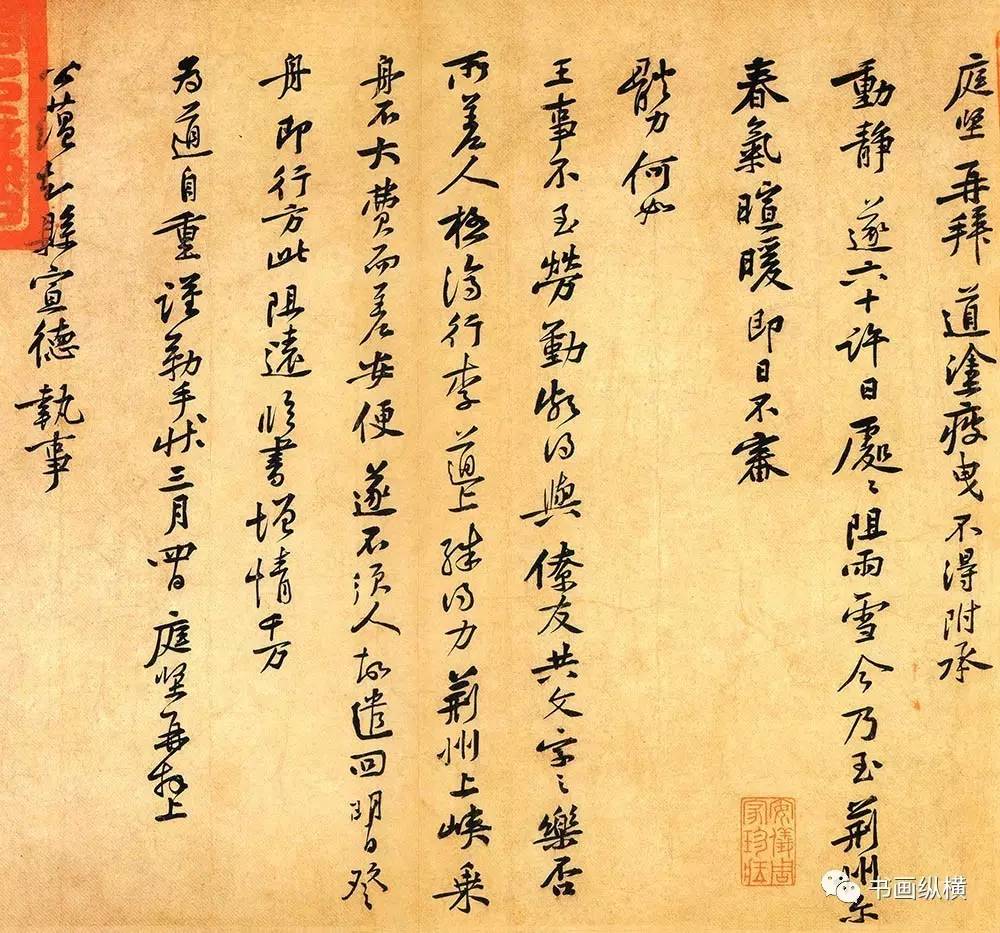 庭坚再拜道塗疲曳不得附承
動静遂六十許日處〻阻雨雪今乃至荆州尔
春氣暄暖即日不審
體力何如
王事不至勞勤頗得與僚友共文字之樂否
所差人極濟行李道上殊得力荆州上峽乘
舟不大費而差安便遂不須人故遣回明日登
舟即行方此阻遠臨書增情千万
为道自重謹勒手狀三月四日庭坚再拜上
公藴知縣宣德執事
安儀周家珍藏
书画纵横